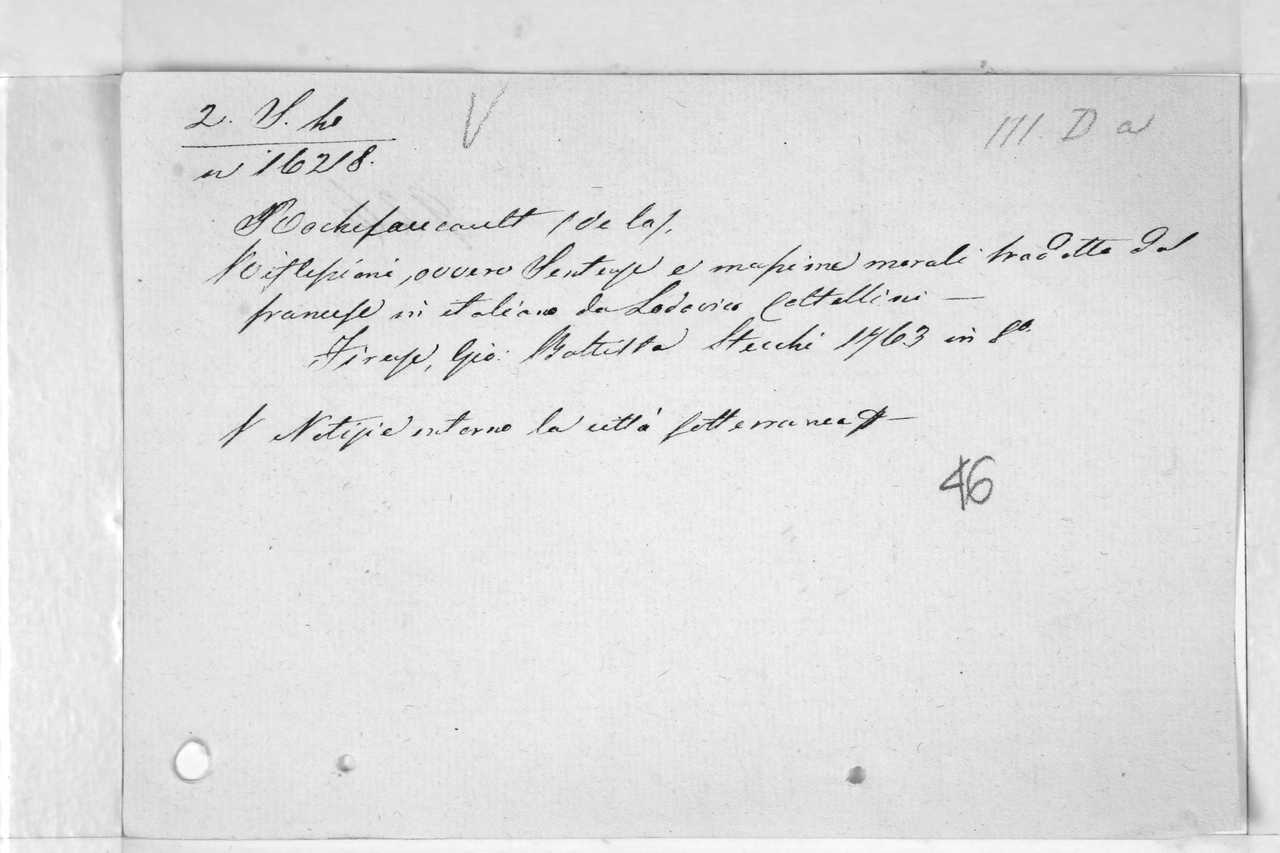 2. S. h
V
III. D a
n 1628.
Rochefaucault (de la).
Riflessioni, ovvero Sentenze e massime morali tradotte dal
francese in italiano da Lodovico Coltellini —
Firenze, Gio: Battista Stecchi 1763 in 8º
V Notizie intorno la città sotterranea —
46